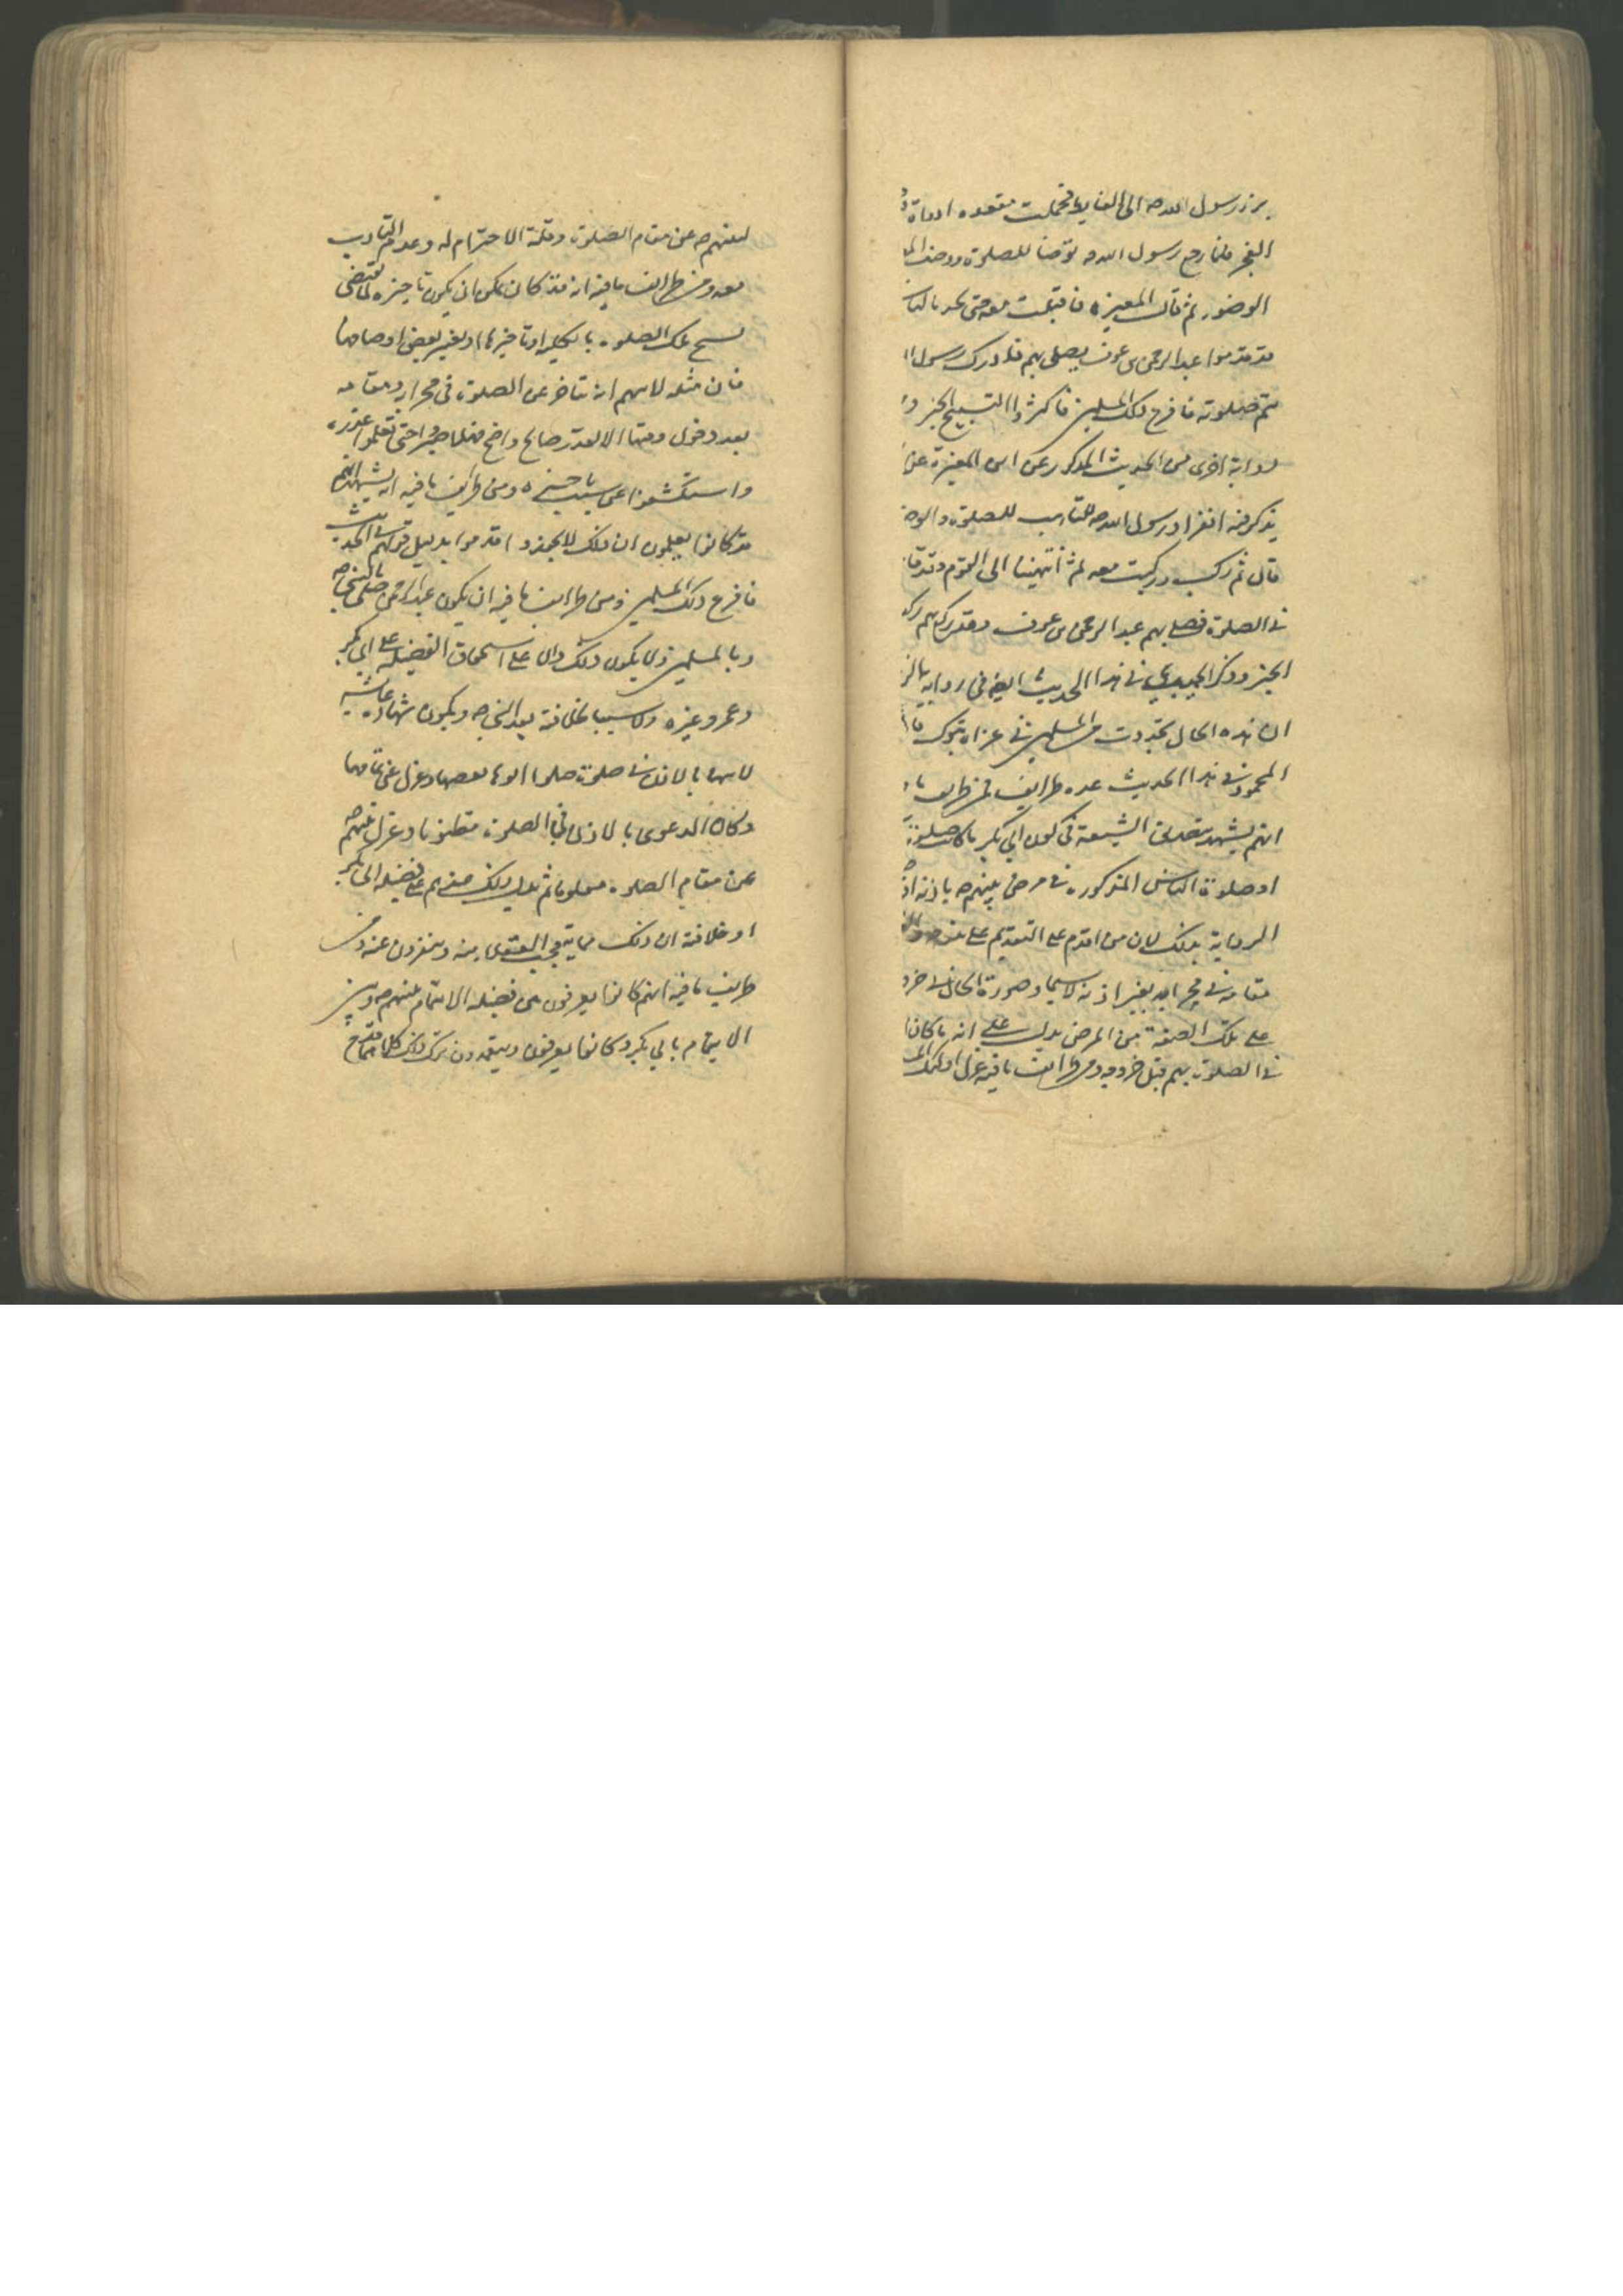 برز رسول الله ص الى الغايط فحملت معه اداوة
الفجر فلما رجع رسول الله ص توضأ للصلوة ووصف
الوضوء ثم قال المغيرة فاقبلت معه حتى نجد الناس
قد قدموا عبد الرحمن بن عوف يصلي بهم فلما ادرك رسول
يتم صلوته فافزع ذلك المسلمين فاكثروا التسبيح الخبر و
رواية اخرى من الحديث المذكور عن ابن المغيرة عن
يذكر فيه انفراد رسول الله ص للتاهب للصلوة والوضو
قال ثم ركب وركبت معه ثم انتهينا الى القوم وقد قا
في الصلوة فصلى بهم عبد الرحمن بن عوف وقد ركع بهم رك
الخبر وذكر الحميدي في هذا الحديث ايضا في رواية
ان هذه الحال تجددت من المسلمين في غزاة تبوك قا
المحمود في هذا الحديث عدة طرايف فمن طرايف ما
انهم يشهد بتصديق الشيعة في كون ابي بكر ما كانت صلوته
او صلوة الناس المذكورة في مرض نبيهم ص باذنه
الرواية بذلك لان من اقدم على التقديم على
مقامه في محرابه بغير اذنه لا سيما وصورة الحال في خرو
على تلك الصفة من المرض يدل على انه ما كان
في الصلوة بهم قبل خروجه ومن طرايف ما فيه عزل اولئك
لنبيهم ص عن مقام الصلوة وقلة الاحترام له وعدم التادب
معه ومن طرايف ما فيه انه قد كان يمكن ان يكون تاخيره لما يقتضي
نسخ تلك الصلوة بالكلية او تاخيرها او تغيير بعض اوصافها
فان مثله لا يتهم انه يتاخر عن الصلوة في محرابه ومقامه
بعد دخول وقتها الا لعذر صالح واضح فهلا صبروا حتى تعلموا عذره
واستكشفوا عن سبب تاخيره ومن طرايف ما فيه انه يشهد انهم
قد كانوا يعلمون ان ذلك لا يجوز و اقدموا بدليل قولهم في الحديث
فافزع ذلك المسلمين ومن طرايف ما فيه ان يكون عبد الرحمن صلى بالنبي ص
وبالمسلمين ولا يكون ذلك دالا على استحقاق الفضيلة على ابي بكر
وعمر وغيره ولا سببا لخلافة بعد النبي ص ويكون شهادة عايشة
لابيها بالاذن في صلوة صلى ابوها بعضها وعزل عن تمامها
وكان الدعوى بالاذن في الصلوة مظنونا وعزل نبيهم ص
عن مقام الصلوة معلوما ثم يدل ذلك عندهم على فضيلة ابي بكر
او خلافة ان ذلك مما يتعجب العقول منه وينفرون عنه ومن
طرايف ما فيه انهم كانوا يعرفون من فضيلة الايتمام بنبيهم ص وبين
الايتمام بابي بكر وكانوا يعرفون ويتعمدون ترك ذلك كلما